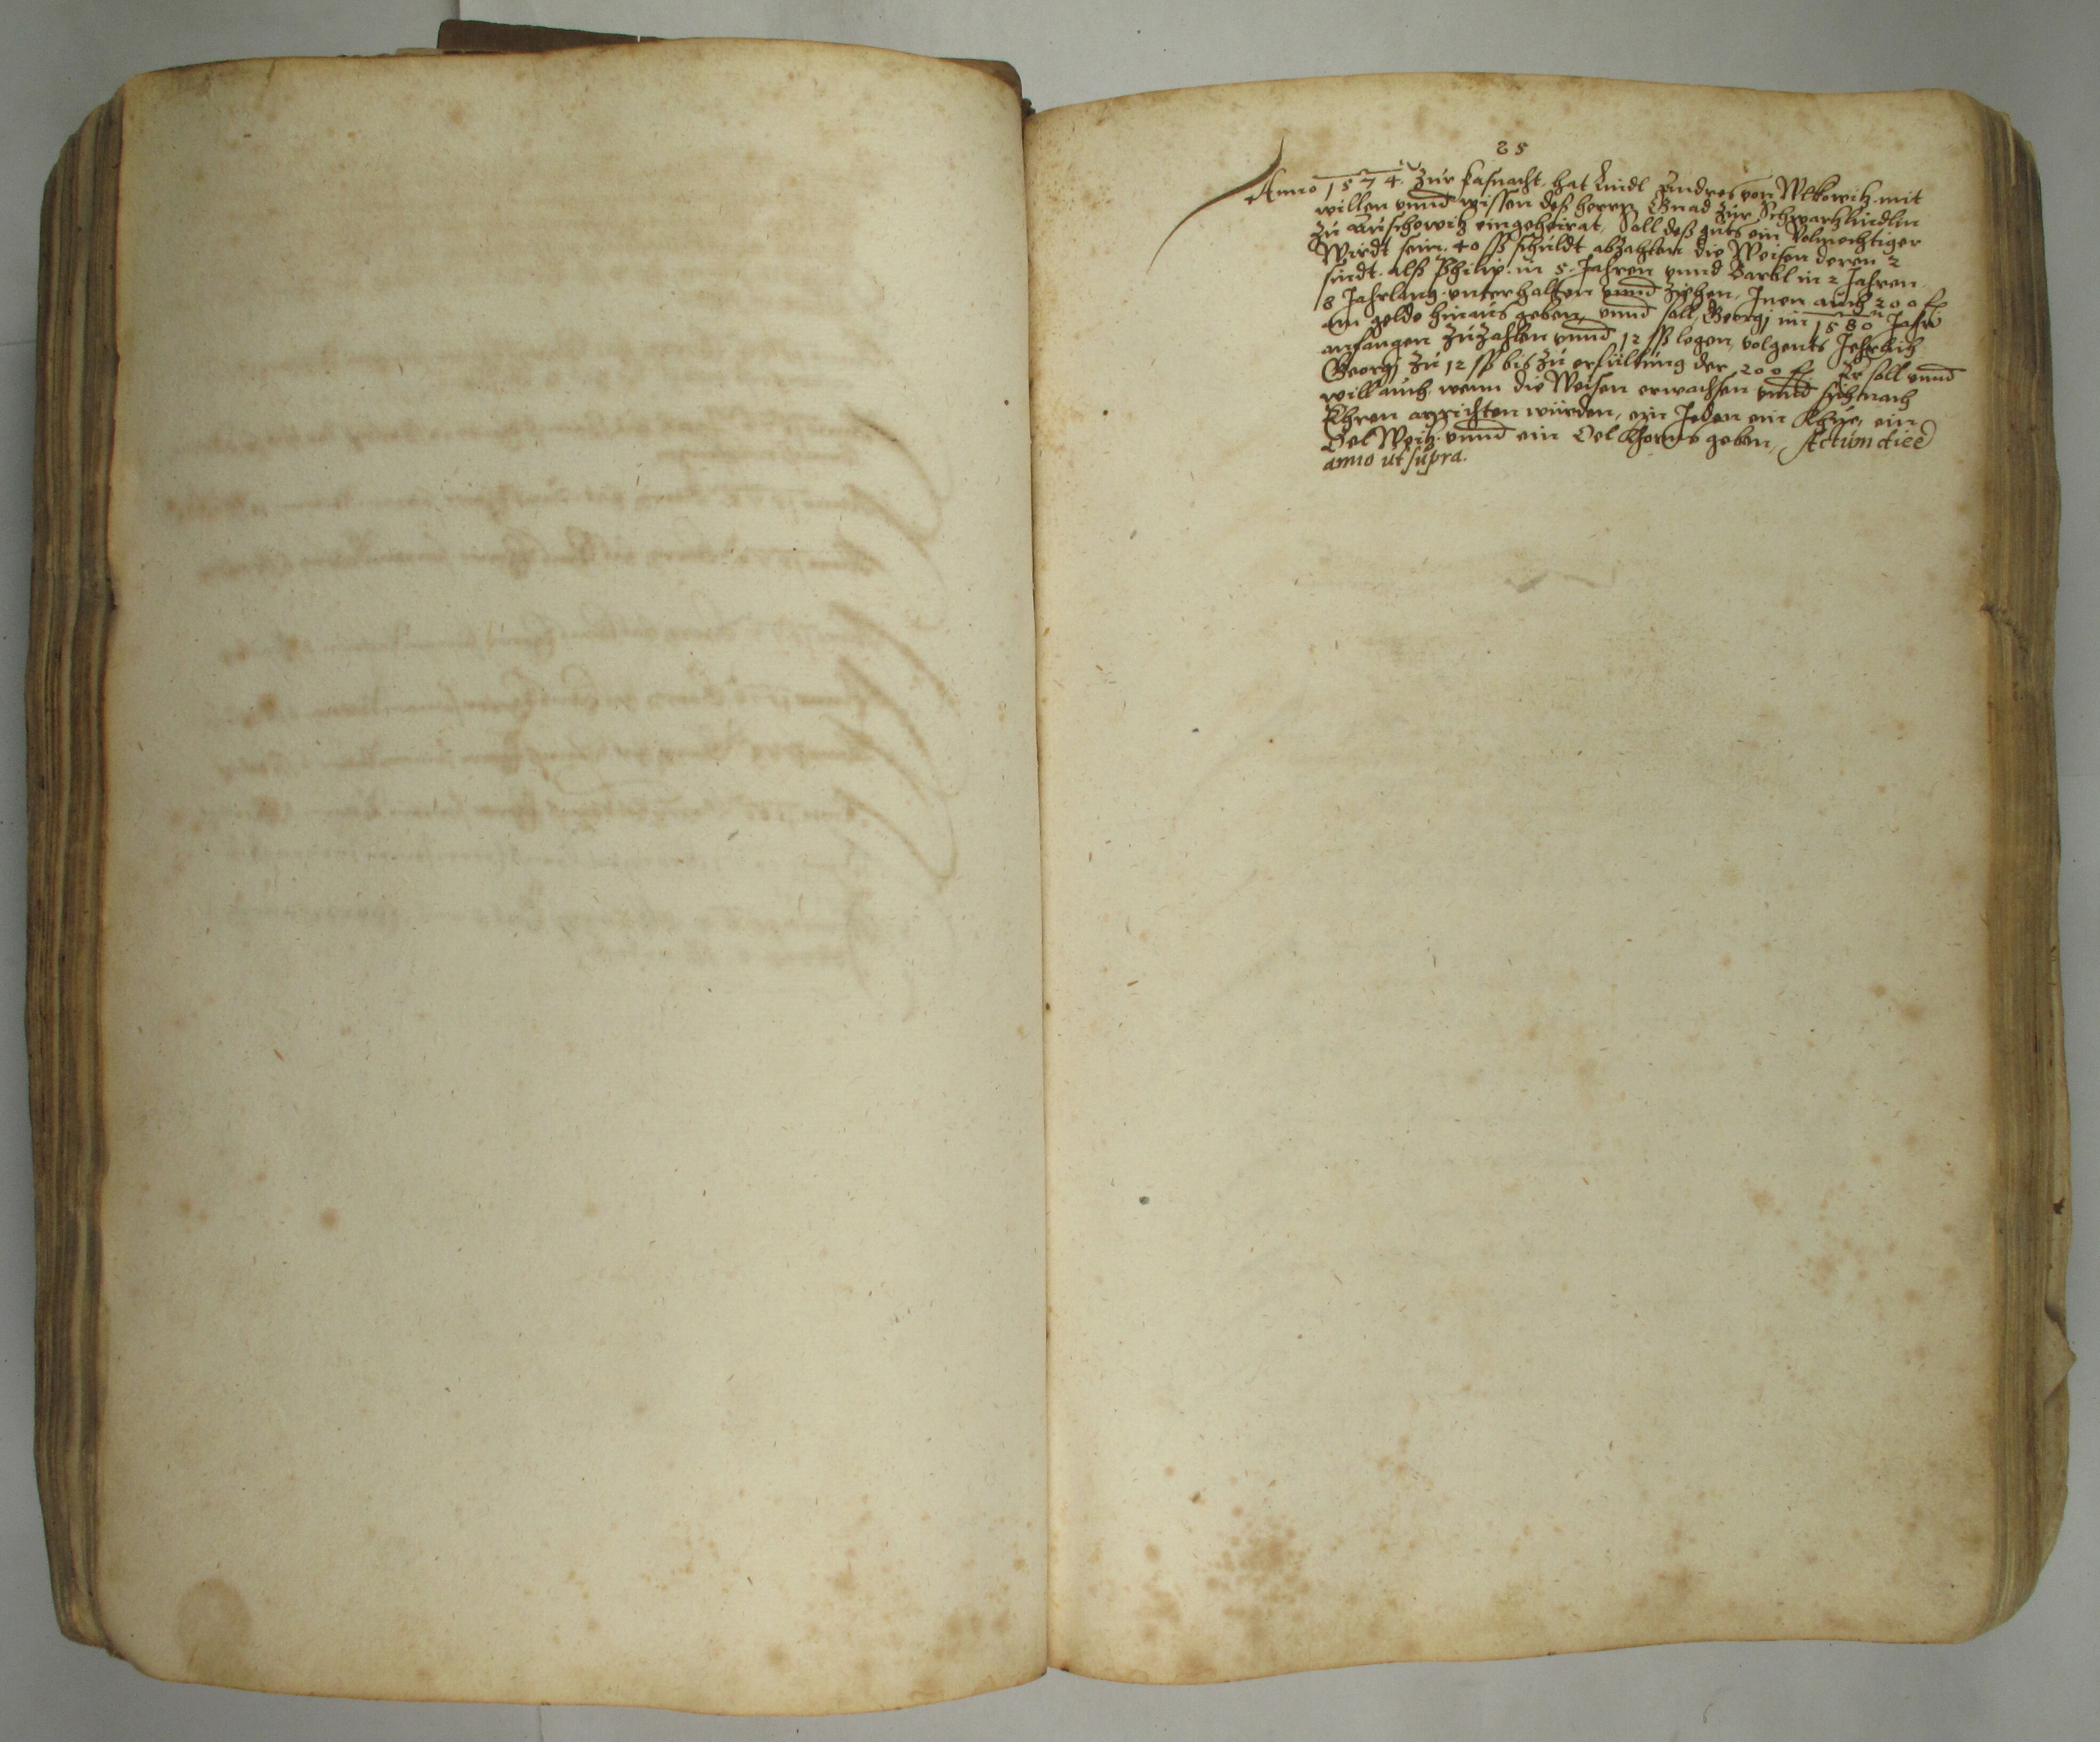 25
Anno 1574. zur fasnacht, hat Lindl Andres von Wlkowitz mit
willen vnnd wissen deß herrn Gnad zur Schwartzlindlin
zu Auschowitz eingeheirat, Soll deß guts ein Volmechtiger
Wirdt sein. 40 ß schuldt abzahlen die Weisen deren 2
sindt. alß Philip. in 5. Jahren vnnd Barbl in 2 Jahren
8 Jahrlang vnterhalten vnnd ziehen, Inen auch 200 fl
am gelde hinaus geben, vnnd soll, Georgj im 1580 Jahr
anfangen zuzahlen vnnd 12 ß legen, volgents Jehrlich
Georgj zu 12 ß bis zu erfüllung der 200 fl Er soll vnnd
will auch wenn die Weisen erwachsen vnnd sich nach
Ehren anrichten würden, ein Jeden ein Khue, ein
Vel Weitz vnnd ein Vel Khorns geben, Actum die et
anno ut supra.